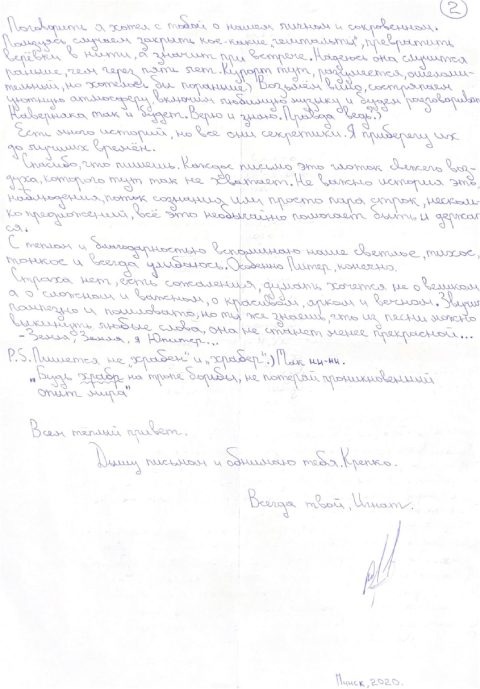 2
Поговорить я хотел с тобой о нашем личном и сокровенном.
Пользуясь случаем закрыть кое-какие „гештальты“, превратить
верёвки в нити, а значит при встрече. Надеюсь она случится
раньше, чем через пять лет. Курорт тут, разумеется,
но хотелось бы пораньше) Возьмём вино, состряпаем
уютную атмосферу, включим любимую музыку и будем разговаривать
Наверняка так и будет. Верю и знаю. Правда ведь?)
Есть много историй, но все они секретики. Я приберегу их
до лучших времён.
Спасибо, что пишешь. Каждое письмо это глоток свежего воз-
духа, которого тут так не хватает. Не важно история это,
наблюдения, поток сознания или просто пара строк, несколь-
ко предложений, всё это необычайно помогает быть и держат
ся.
С теплом и благодарностью вспоминаю наше светлое, тихое,
тонкое и всегда улыбаюсь. Особенно Питер, конечно.
Страха нет, есть сожаления, думать хочется не о великом
а о сложном и важном, о красивом, ярком и вечном. Звучит
но ты же знаешь, что из песни можно
выкинуть любые слова, она не станет менее прекрасной...
- Земля? Земля, я Юпитер...
P.S. Пишется не „храбен“ и „храбер“.) Так ни-ни.
„Будь храбр на тропе борьбы, не потеряй проникновенный
опыт мира“
Всем тёплый привет.
Дышу письмом и обнимаю тебя. Крепко.
Всегда твой, Игнат.
Минск, 2020.